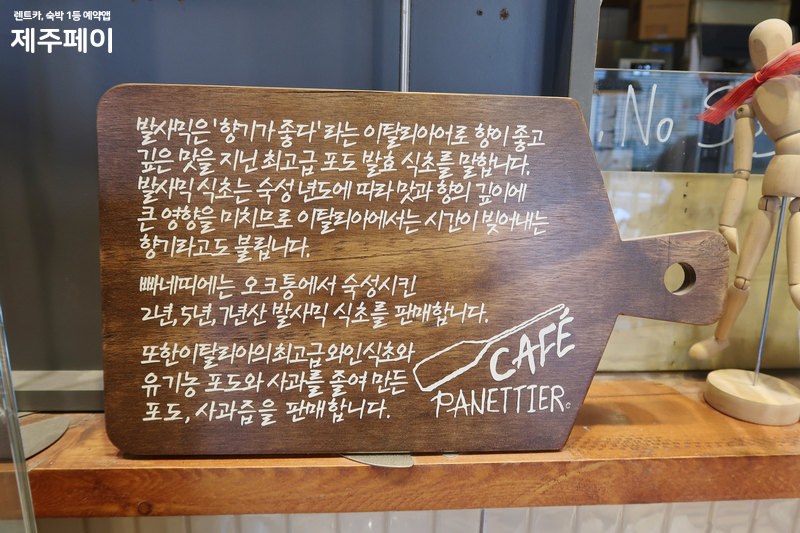 렌트카, 숙박 1등 예약앱
제주페이
발사믹은 '향기가 좋다' 라는 이탈리아어로 향이 좋고
깊은 맛을 지닌 최고급 포도 발효 식초를 말합니다.
발사믹 식초는 숙성 년도에 따라 맛과 향의 깊이에
큰 영향을 미치므로 이탈리아에서는 시간이 빚어내는
향기라고도 불립니다.
빠네띠에는 오크통에서 숙성시킨
2년, 5년, 7년산 발사믹 식초를 판매합니다.
또한 이탈리아의 최고급 와인식초와
유기농 포도와 사과를 졸여 만든
포도, 사과즙을 판매합니다.
CAFÉ
PANETTIER
No